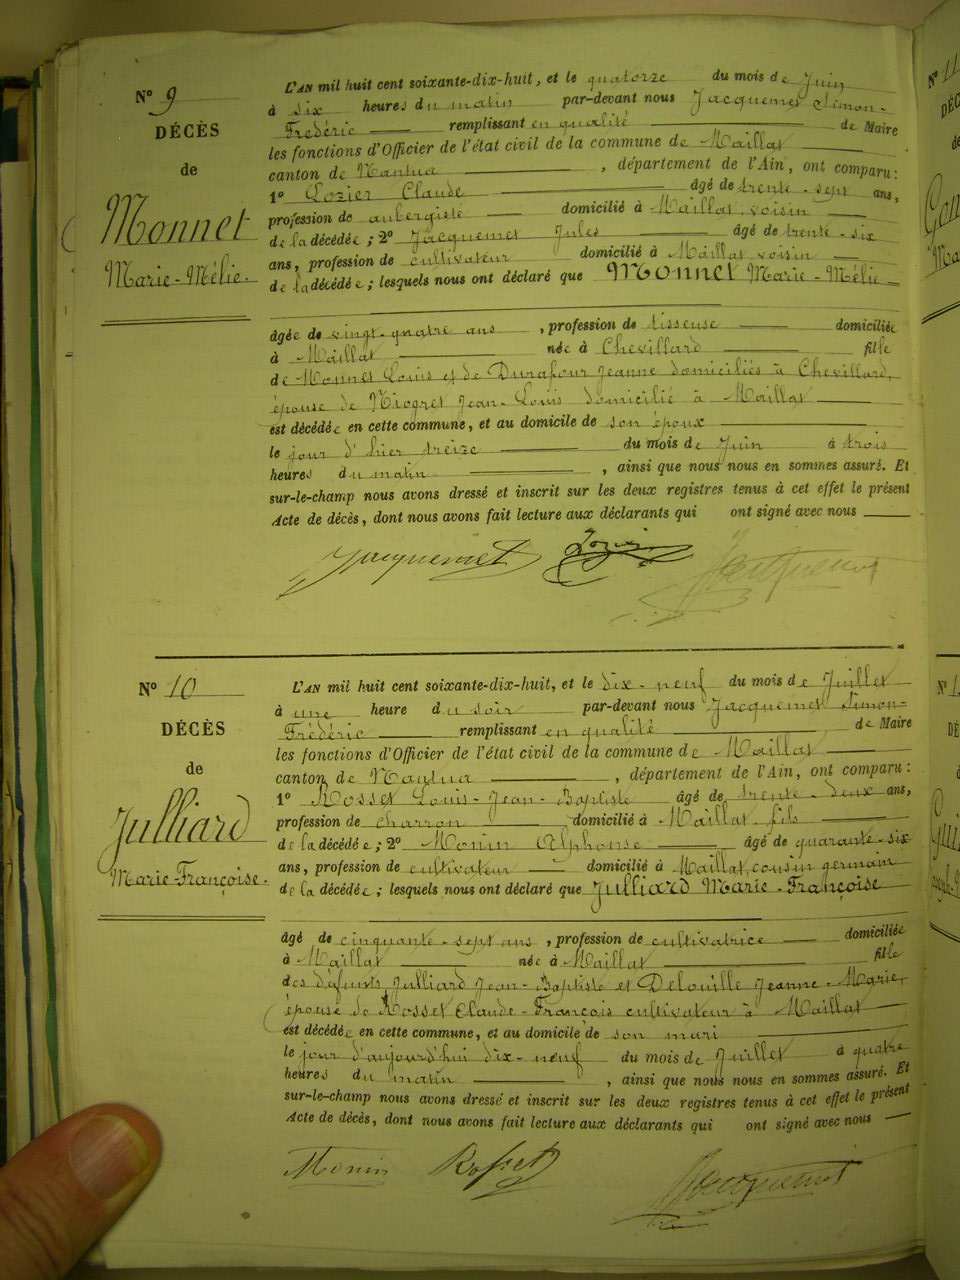 N° 9
DÉCÈS
de
Monnet
Marie-Mélie.
L'AN mil huit cent soixante-dix-huit, et le quatorze du mois de Juin
à six heures du matin par-devant nous Jacquemet Simon-
Frédéric remplissant en qualité de Maire
les fonctions d'Officier de l'état civil de la commune de Maillat
canton de Nantua, département de l'Ain, ont comparu:
1° Lozier Claude âgé de trente-sept ans,
profession de aubergiste domicilié à Maillat, voisin
de la décédée; 2° Jacquemet Jules âgé de trente-six
ans, profession de cultivateur domicilié à Maillat voisin
de la décédée; lesquels nous ont déclaré que Monnet Marie-Mélie
âgée de vingt-quatre ans, profession de tisseuse domiciliée
à Maillat née à Chevillard fille
de Monnet Louis et de Durafour Jeanne domiciliés à Chevillard,
épouse de Niogret Jean-Louis domicilié à Maillat
est décédée en cette commune, et au domicile de son époux
le jour d'hier treize du mois de Juin à trois
heures du matin, ainsi que nous nous en sommes assuré. Et
sur-le-champ nous avons dressé et inscrit sur les deux registres tenus à cet effet le présent
Acte de décès, dont nous avons fait lecture aux déclarants qui ont signé avec nous
Jacquemet Lozier Jacquemet
N° 10
DÉCÈS
de
Julliard
Marie-Françoise.
L'AN mil huit cent soixante-dix-huit, et le dix-neuf du mois de Juillet
à une heure du soir par-devant nous Jacquemet Simon-
Frédéric remplissant en qualité de Maire
les fonctions d'Officier de l'état civil de la commune de Maillat
canton de Nantua, département de l'Ain, ont comparu:
1° Rosset Louis-Jean-Baptiste âgé de trente-deux ans,
profession de charron domicilié à Maillat fils
de la décédée; 2° Monin Alphonse âgé de quarante-six
ans, profession de cultivateur domicilié à Maillat, cousin germain
de la décédée; lesquels nous ont déclaré que Julliard Marie-Françoise
âgé de cinquante-sept ans, profession de cultivatrice domiciliée
à Maillat née à Maillat fille
des défunts Julliard Jean-Baptiste et Delouille Jeanne-Marie,
épouse de Rosset Claude-François cultivateur à Maillat
est décédée en cette commune, et au domicile de son mari
le jour d'aujourd'hui dix-neuf du mois de Juillet à quatre
heures du matin, ainsi que nous nous en sommes assuré. Et
sur-le-champ nous avons dressé et inscrit sur les deux registres tenus à cet effet le présent
Acte de décès, dont nous avons fait lecture aux déclarants qui ont signé avec nous
Monin Rosset Jacquemet